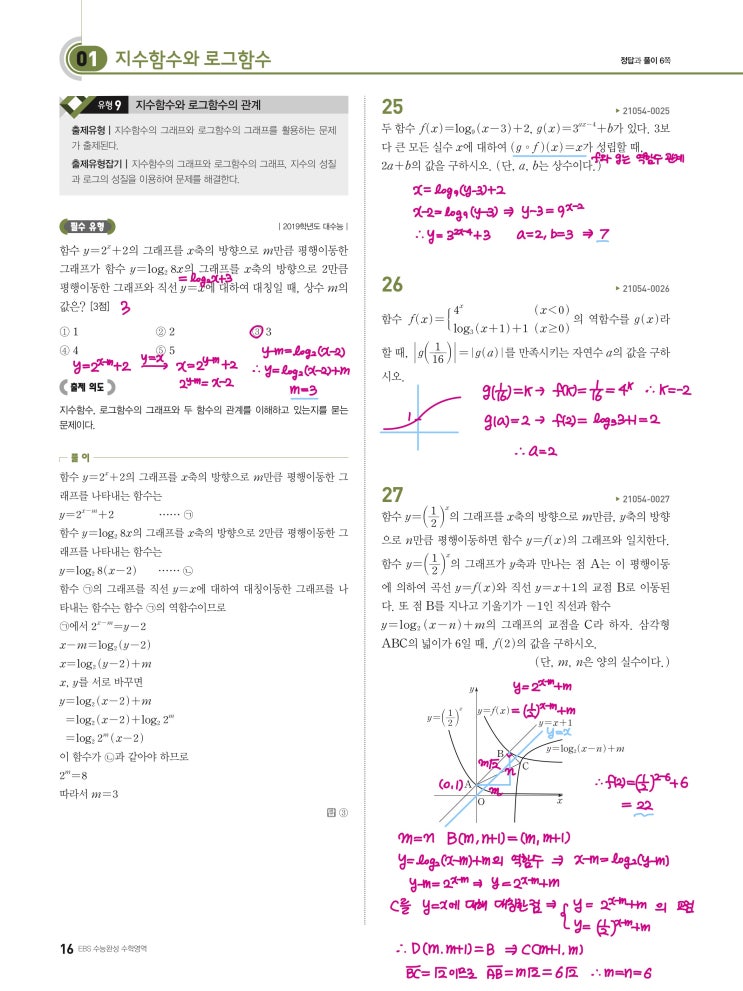 01 지수함수와 로그함수
정답과 풀이 6쪽
유형 9 지수함수와 로그함수의 관계
출제유형 | 지수함수의 그래프와 로그함수의 그래프를 활용하는 문제
가 출제된다.
출제유형잡기 | 지수함수의 그래프와 로그함수의 그래프, 지수의 성질
과 로그의 성질을 이용하여 문제를 해결한다.
필수 유형
| 2019학년도 대수능 |
함수 y=2^x+2의 그래프를 x축의 방향으로 m만큼 평행이동한
그래프가 함수 y=log₂ 8x의 그래프를 x축의 방향으로 2만큼
= log₂x+3
평행이동한 그래프와 직선 y=x에 대하여 대칭일 때, 상수 m의
값은? [3점] 3
① 1 ② 2 ③ 3
④ 4 ⑤ 5
y=2^(x-m)+2 y=x → x=2^(y-m)+2
2^(y-m)=x-2
y-m=log₂(x-2)
∴ y=log₂(x-2)+m
m=3
출제 의도
지수함수, 로그함수의 그래프와 두 함수의 관계를 이해하고 있는지를 묻는
문제이다.
풀이
함수 y=2^x+2의 그래프를 x축의 방향으로 m만큼 평행이동한 그
래프를 나타내는 함수는
y=2^(x-m)+2 …… ㉠
함수 y=log₂ 8x의 그래프를 x축의 방향으로 2만큼 평행이동한 그
래프를 나타내는 함수는
y=log₂ 8(x-2) …… ㉡
함수 ㉠의 그래프를 직선 y=x에 대하여 대칭이동한 그래프를 나
타내는 함수는 함수 ㉠의 역함수이므로
㉠에서 2^(x-m)=y-2
x-m=log₂(y-2)
x=log₂(y-2)+m
x, y를 서로 바꾸면
y=log₂(x-2)+m
=log₂(x-2)+log₂ 2^m
=log₂ 2^m(x-2)
이 함수가 ㉡과 같아야 하므로
2^m=8
따라서 m=3
답 ③
25
▶ 21054-0025
두 함수 f(x)=log₉(x-3)+2, g(x)=3^(ax-4)+b가 있다. 3보
다 큰 모든 실수 x에 대하여 (g∘f)(x)=x가 성립할 때,
f와 g는 역함수 관계
2a+b의 값을 구하시오. (단, a, b는 상수이다.)
x=log₉(y-3)+2
x-2=log₉(y-3) ⇒ y-3=9^(x-2)
∴ y=3^(2x-4)+3 a=2, b=3 ⇒ 7
26
▶ 21054-0026
함수 f(x)={4^x (x<0)
log₃(x+1)+1 (x≥0) 의 역함수를 g(x)라
할 때, |g(1/16)|=|g(a)|를 만족시키는 자연수 a의 값을 구하
시오.
1
g(1/16)=k → f(k)=1/16=4^k ∴ k=-2
g(a)=2 → f(2)=log₃3+1=2
∴ a=2
27
▶ 21054-0027
함수 y=(1/2)^x의 그래프를 x축의 방향으로 m만큼, y축의 방향
으로 n만큼 평행이동하면 함수 y=f(x)의 그래프와 일치한다.
함수 y=(1/2)^x의 그래프가 y축과 만나는 점 A는 이 평행이동
에 의하여 곡선 y=f(x)와 직선 y=x+1의 교점 B로 이동된
다. 또 점 B를 지나고 기울기가 -1인 직선과 함수
y=log₂(x-n)+m의 그래프의 교점을 C라 하자. 삼각형
ABC의 넓이가 6일 때, f(2)의 값을 구하시오.
(단, m, n은 양의 실수이다.)
y=2^(x-m)+m
y=(1/2)^x y=f(x) =(1/2)^(x-m)+m
y=x+1
y=x
y=log₂(x-n)+m
y
B
C
m√2
n
m
(0,1) A
O
x
∴ f(2)=(1/2)^(2-6)+6
= 22
m=n B(m, n+1)=(m, m+1)
y=log₂(x-m)+m의 역함수 ⇒ x-m=log₂(y-m)
y-m=2^(x-m) ⇒ y=2^(x-m)+m
C를 y=x에 대해 대칭한 점 ⇒ { y=2^(x-m)+m 의 교점
y=(1/2)^(x-m)+m
∴ D(m, m+1)=B ⇒ C(m+1, m)
BC=√2 이므로 AB=m√2=6√2 ∴ m=n=6
16 EBS 수능완성 수학영역